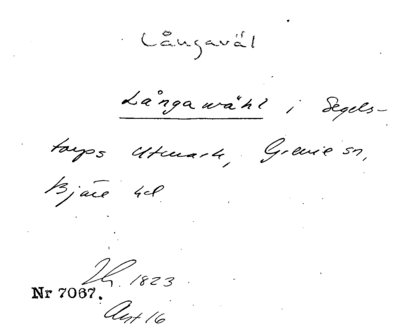 Långaväl
Långawähl i Segels-
torps Utmark, Grevie sn,
Bjäre hd.
1823
Nr 7067.
Akt 16